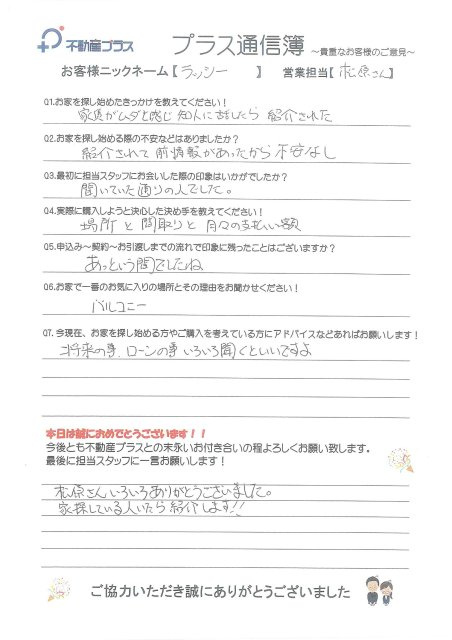 不動産プラス プラス通信簿 ～貴重なお客様のご意見～
お客様ニックネーム【 ラッシー 】 営業担当【 松原さん 】
Q1.お家を探し始めたきっかけを教えてください！
家賃がムダと感じ 知人に話したら 紹介された
Q2.お家を探し始める際の不安などはありましたか？
紹介されて 前情報があったから 不安なし
Q3.最初に担当スタッフにお会いした際の印象はいかがでしたか？
聞いていた通りの人でした。
Q4.実際に購入しようと決心した決め手を教えてください！
場所 と 間取り と 月々の支払い額
Q5.申込み～契約～お引渡しまでの流れで印象に残ったことはございますか？
あっという間でしたね
Q6.お家で一番のお気に入りの場所とその理由をお聞かせください！
バルコニー
Q7.今現在、お家を探し始める方やご購入を考えている方にアドバイスなどあればお願いします！
将来の事、ローンの事 いろいろ聞くといいですよ
本日は誠におめでとうございます！！
今後とも不動産プラスとの末永いお付き合いの程よろしくお願い致します。
最後に担当スタッフに一言お願いします！
松原さん いろいろありがとうございました。
家探している人いたら 紹介します!!
ご協力いただき誠にありがとうございました